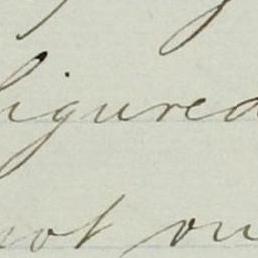 figured
not on